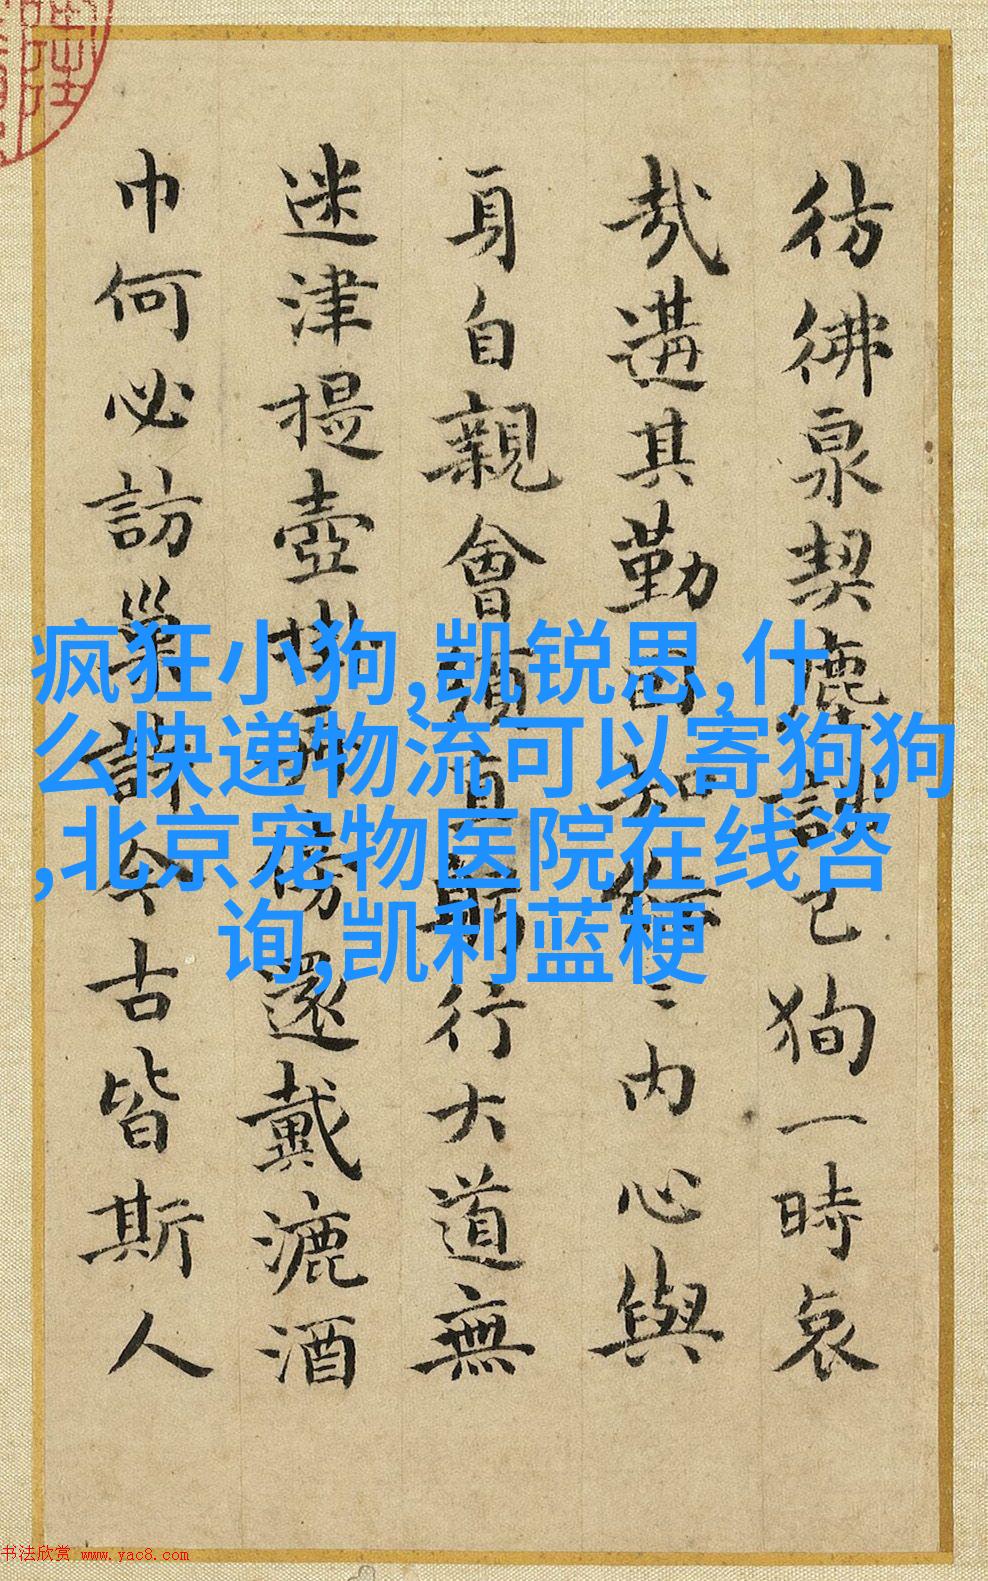 彷彿泉契塵談已狥一時哀
哉遘其勤知内心與
身自親會須直躬行大道無
迷津提壺傍還戴漉酒
巾何必訪巢許今古皆斯人
疯狂小狗,凯锐思,什
么快递物流可以寄狗狗
,北京宠物医院在线咨
询,凯利蓝梗
书法欣赏 www.yac8.com